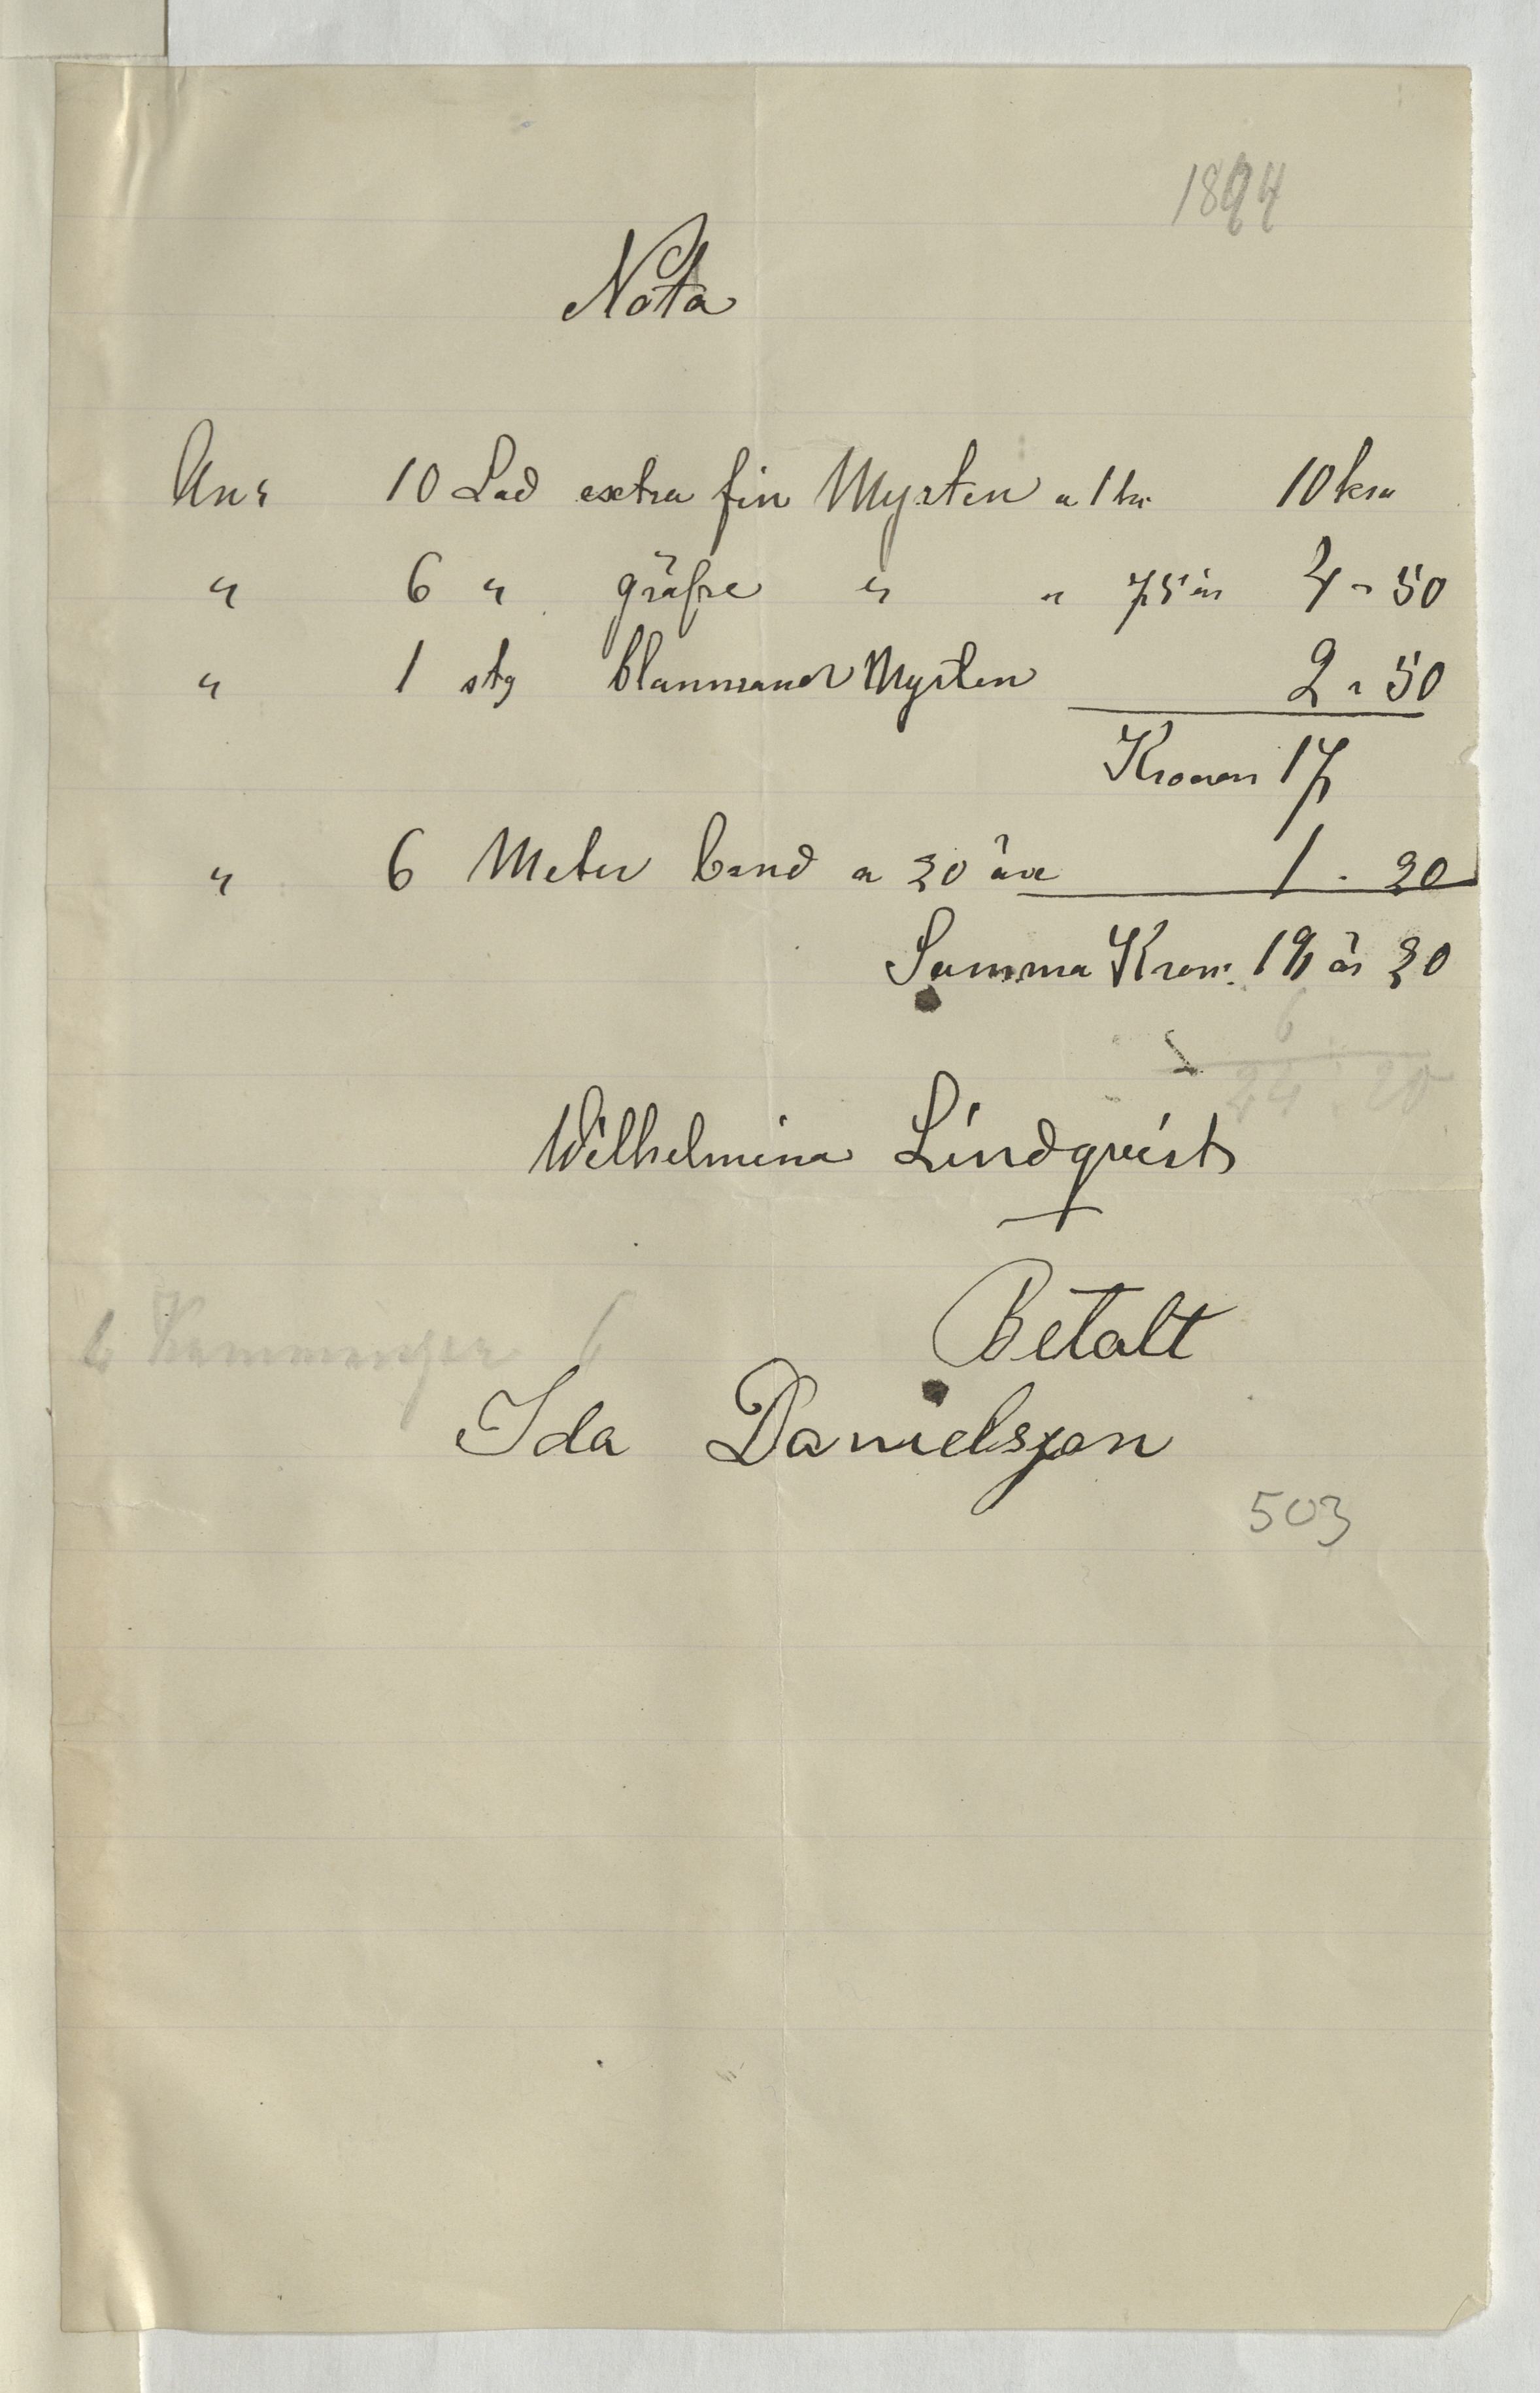 1894
Nota
10 Lod extra fin Myrten a 1 kr 10 kro
" 6 " gräfre " " 75 ör 4 " 50
" 1 stg Myrten 2 " 50
Kronor 17
" 6 Meter band a 20 öre 1 . 20
Summa Kron. 19 ör 20
6
Wilhelmina Lindqvist
Betalt
6
Ida Danielsson
503